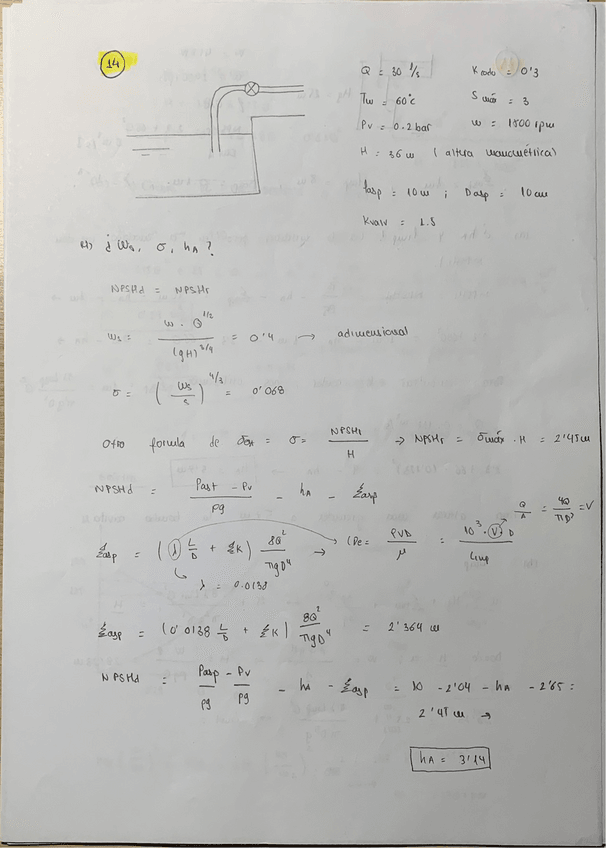 14
Q = 30 l/s    K codo = 0'3
Tw = 60°c    S máx = 3
Pv = 0.2 bar    w = 1500 rpm
H = 36 m ( altura manométrica)
lasp = 10 m ; Dasp = 10 cm
Kvalv = 1.5
a) ¿ Ws, σ, hA ?
NPSHd = NPSHr
ws = w · Q^1/2 / (gH)^3/4 = 0'4 → adimensional
σ = ( ws / s )^4/3 = 0'068
Otro formula de = σ = NPSHr / H → NPSHr = σmáx · H = 2'45 m
NPSHd = Past - Pv / ρg - hA - ξasp
Q / A = 4Q / πD² = V
ξasp = ( λ L/D + ξK ) 8Q² / πgD⁴ → (Re = ρVD / μ = 10³ · V · D
λ = 0.0138
ξasp = (0'0138 L/D + ξK ) 8Q² / πgD⁴ = 2'364 m
NPSHd = Pasp - Pv / ρg ρg - hA - ξasp = 10 - 2'04 - hA - 2'65 =
2'45 m →
hA = 3'14